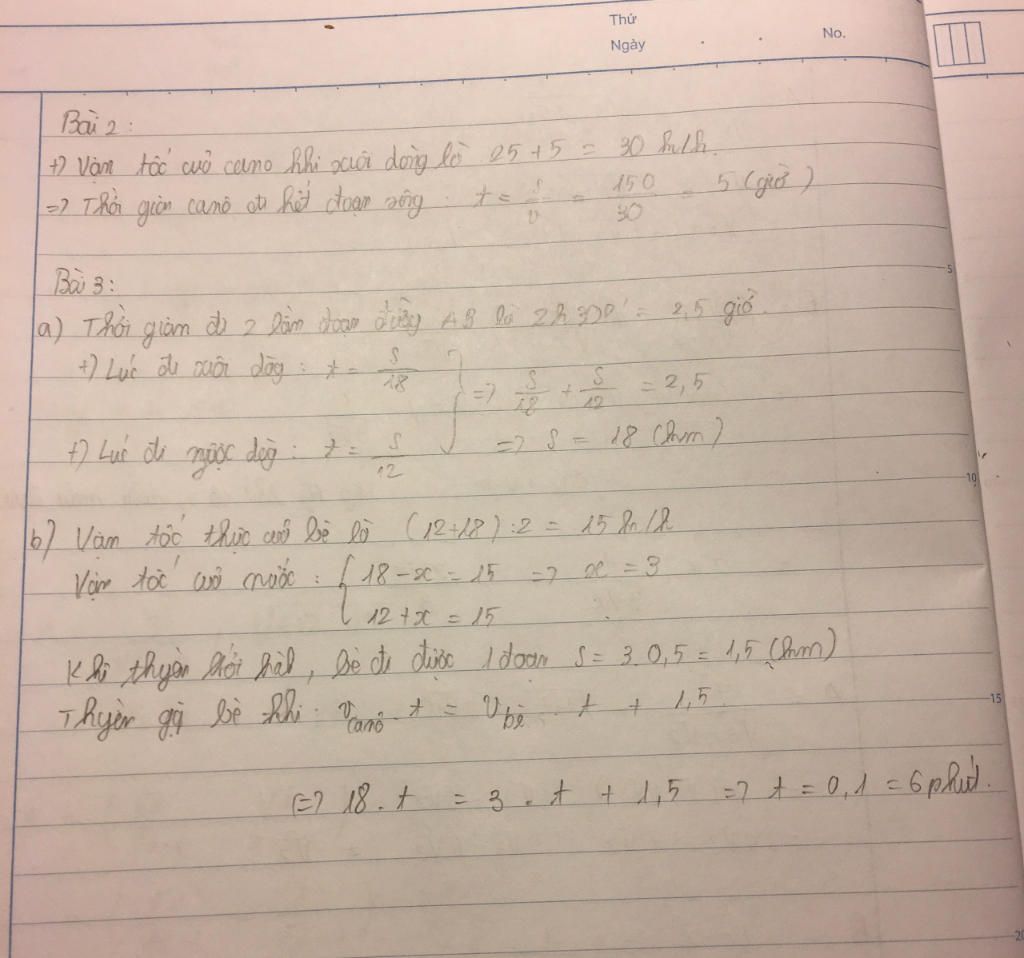 Thứ
Ngày . . No.
Bài 2:
+) Vận tốc cuả cano khi xuôi dòng là 25 + 5 = 30 km/h.
=> Thời gian canô đi hết đoạn sông : t = s/v = 150/30 = 5 (giờ)
Bài 3:
5
a) Thời gian đi 2 lần đoạn đường AB là 2h30' = 2,5 giờ.
+) Lúc đi xuôi dòg : t = s/18 } => s/18 + s/12 = 2,5
+) Lúc đi ngược dòg : t = s/12 => s = 18 (km)
10
b) Vận tốc thực cuả bè là (12+18) : 2 = 15 km/h
Vận tốc cuả nước : { 18 - x = 15 => x = 3
12 + x = 15
Khi thuyền khởi hàh, bè đi được 1 đoạn s = 3.0,5 = 1,5 (km)
Thuyền gặp bè khi : v canô . t = v bè . t + 1,5
15
(=> 18 . t = 3 . t + 1,5 => t = 0,1 = 6 phút.
20